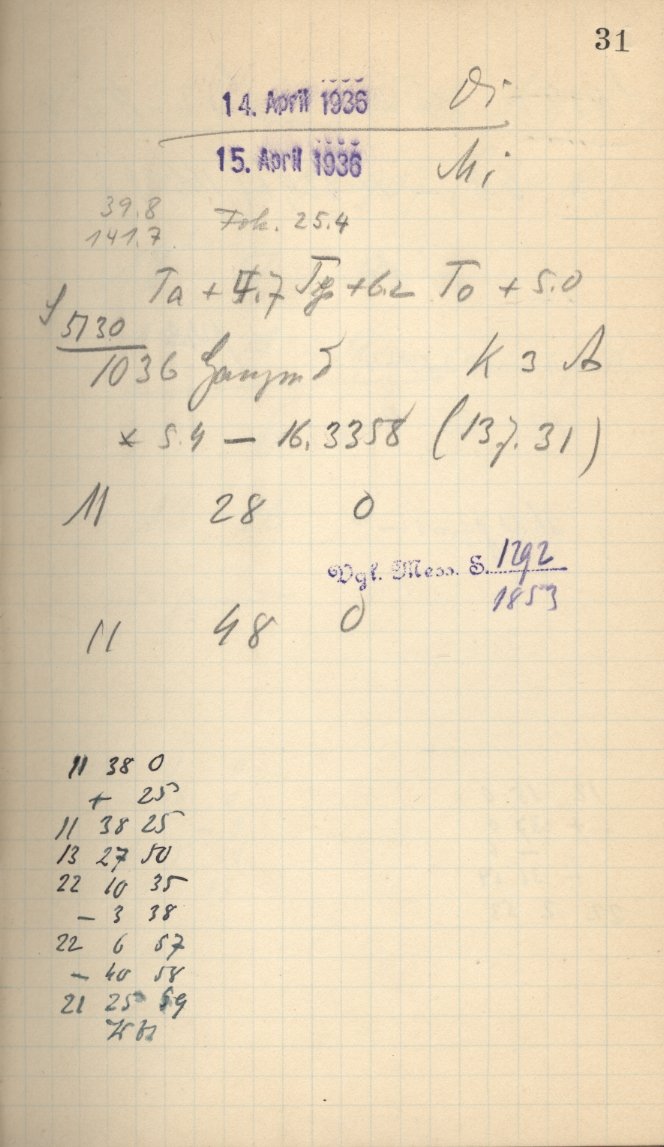 31
14. April 1936 Di
15. April 1936 Mi
39.8
141.7
Fok. 25.4
Ta + 4.7 Tg + 6.2 To + 5.0
S 5130
1036 K 3 A
× 5.4 — 16.3358 (137.31)
11 28 0
Vgl. Mess. S. 1292
1853
11 48 0
11 38 0
+ 25
11 38 25
13 27 50
22 10 35
- 3 38
22 6 57
- 40 58
21 25 59